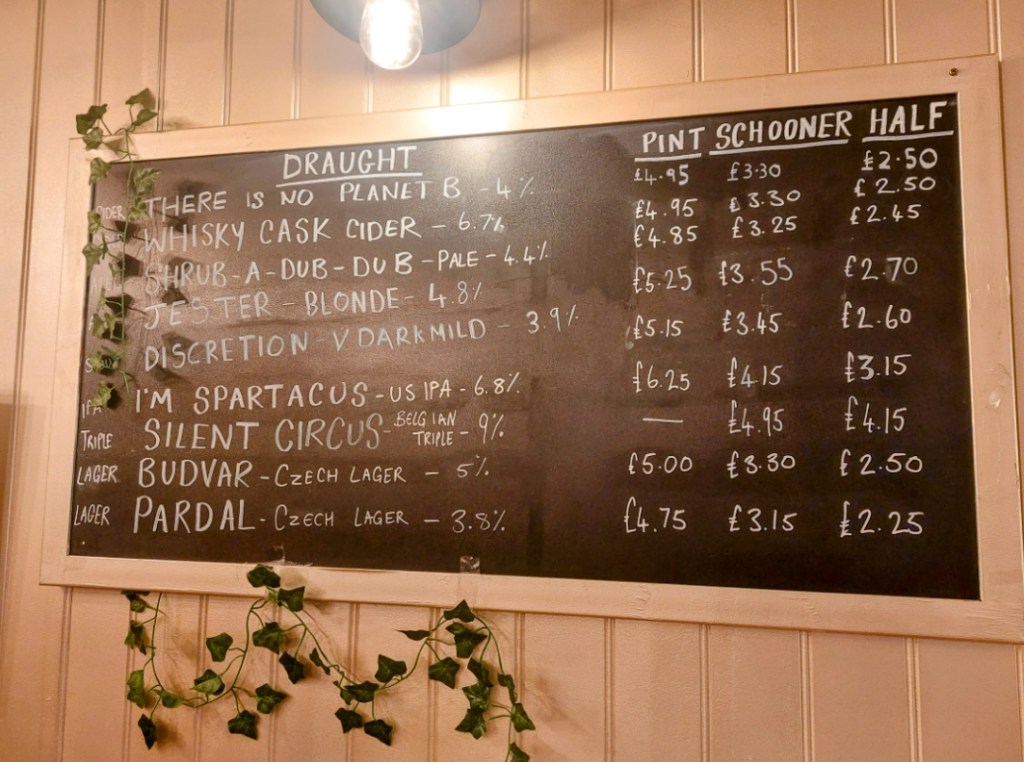 DRAUGHT PINT SCHOONER HALF
THERE IS NO PLANET B - 4% £4.95 £3.30 £2.50
CIDER WHISKY CASK CIDER - 6.7% £4.95 £3.30 £2.50
SHRUB-A-DUB-DUB-PALE-4.4% £4.85 £3.25 £2.45
JESTER-BLONDE-4.8% £5.25 £3.55 £2.70
DISCRETION-V DARK MILD - 3.9% £5.15 £3.45 £2.60
IPA I'M SPARTACUS-US IPA-6.8% £6.25 £4.15 £3.15
TRIPLE SILENT CIRCUS-BELGIAN TRIPLE-9% — £4.95 £4.15
LAGER BUDVAR-CZECH LAGER - 5% £5.00 £3.30 £2.50
LAGER PARDAL-CZECH LAGER - 3.8% £4.75 £3.15 £2.25